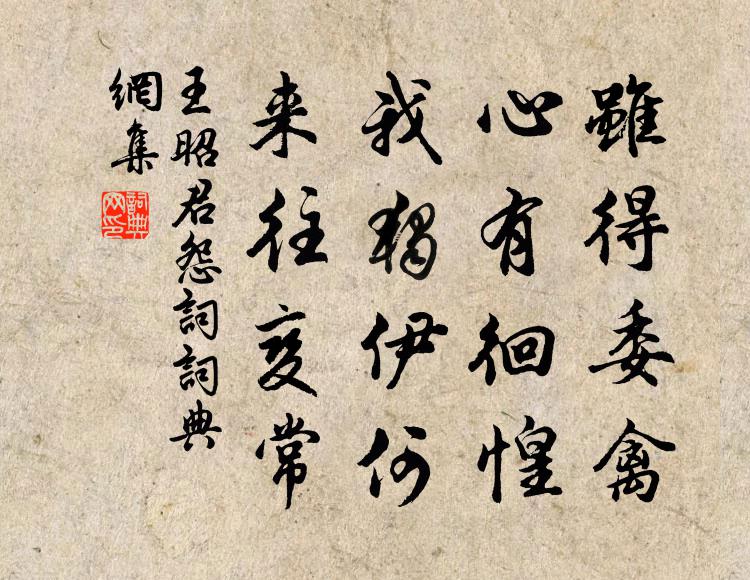 雖得委禽
心有徊惶
我獨伊何
来往变常
王昭君怨詞詞典
網集
詞典
网印